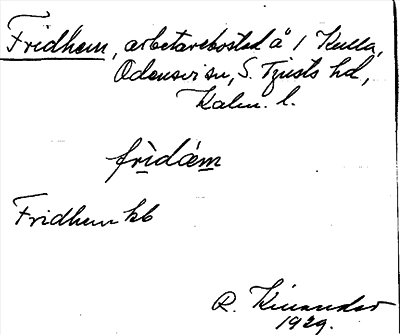 Fridhem, arbetarebostad å 1 Kulla,
Odensvi sn, S. Tjusts hd,
Kalm. l.
fridäm
Fridhem kb
R. Kinander
1929.